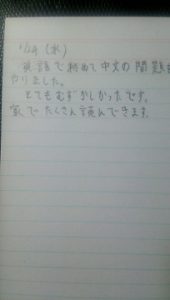 (水)
英語で初めて中文の問題を
やりました。
とてもむずかしかったです。
家でたくさん読んできます。